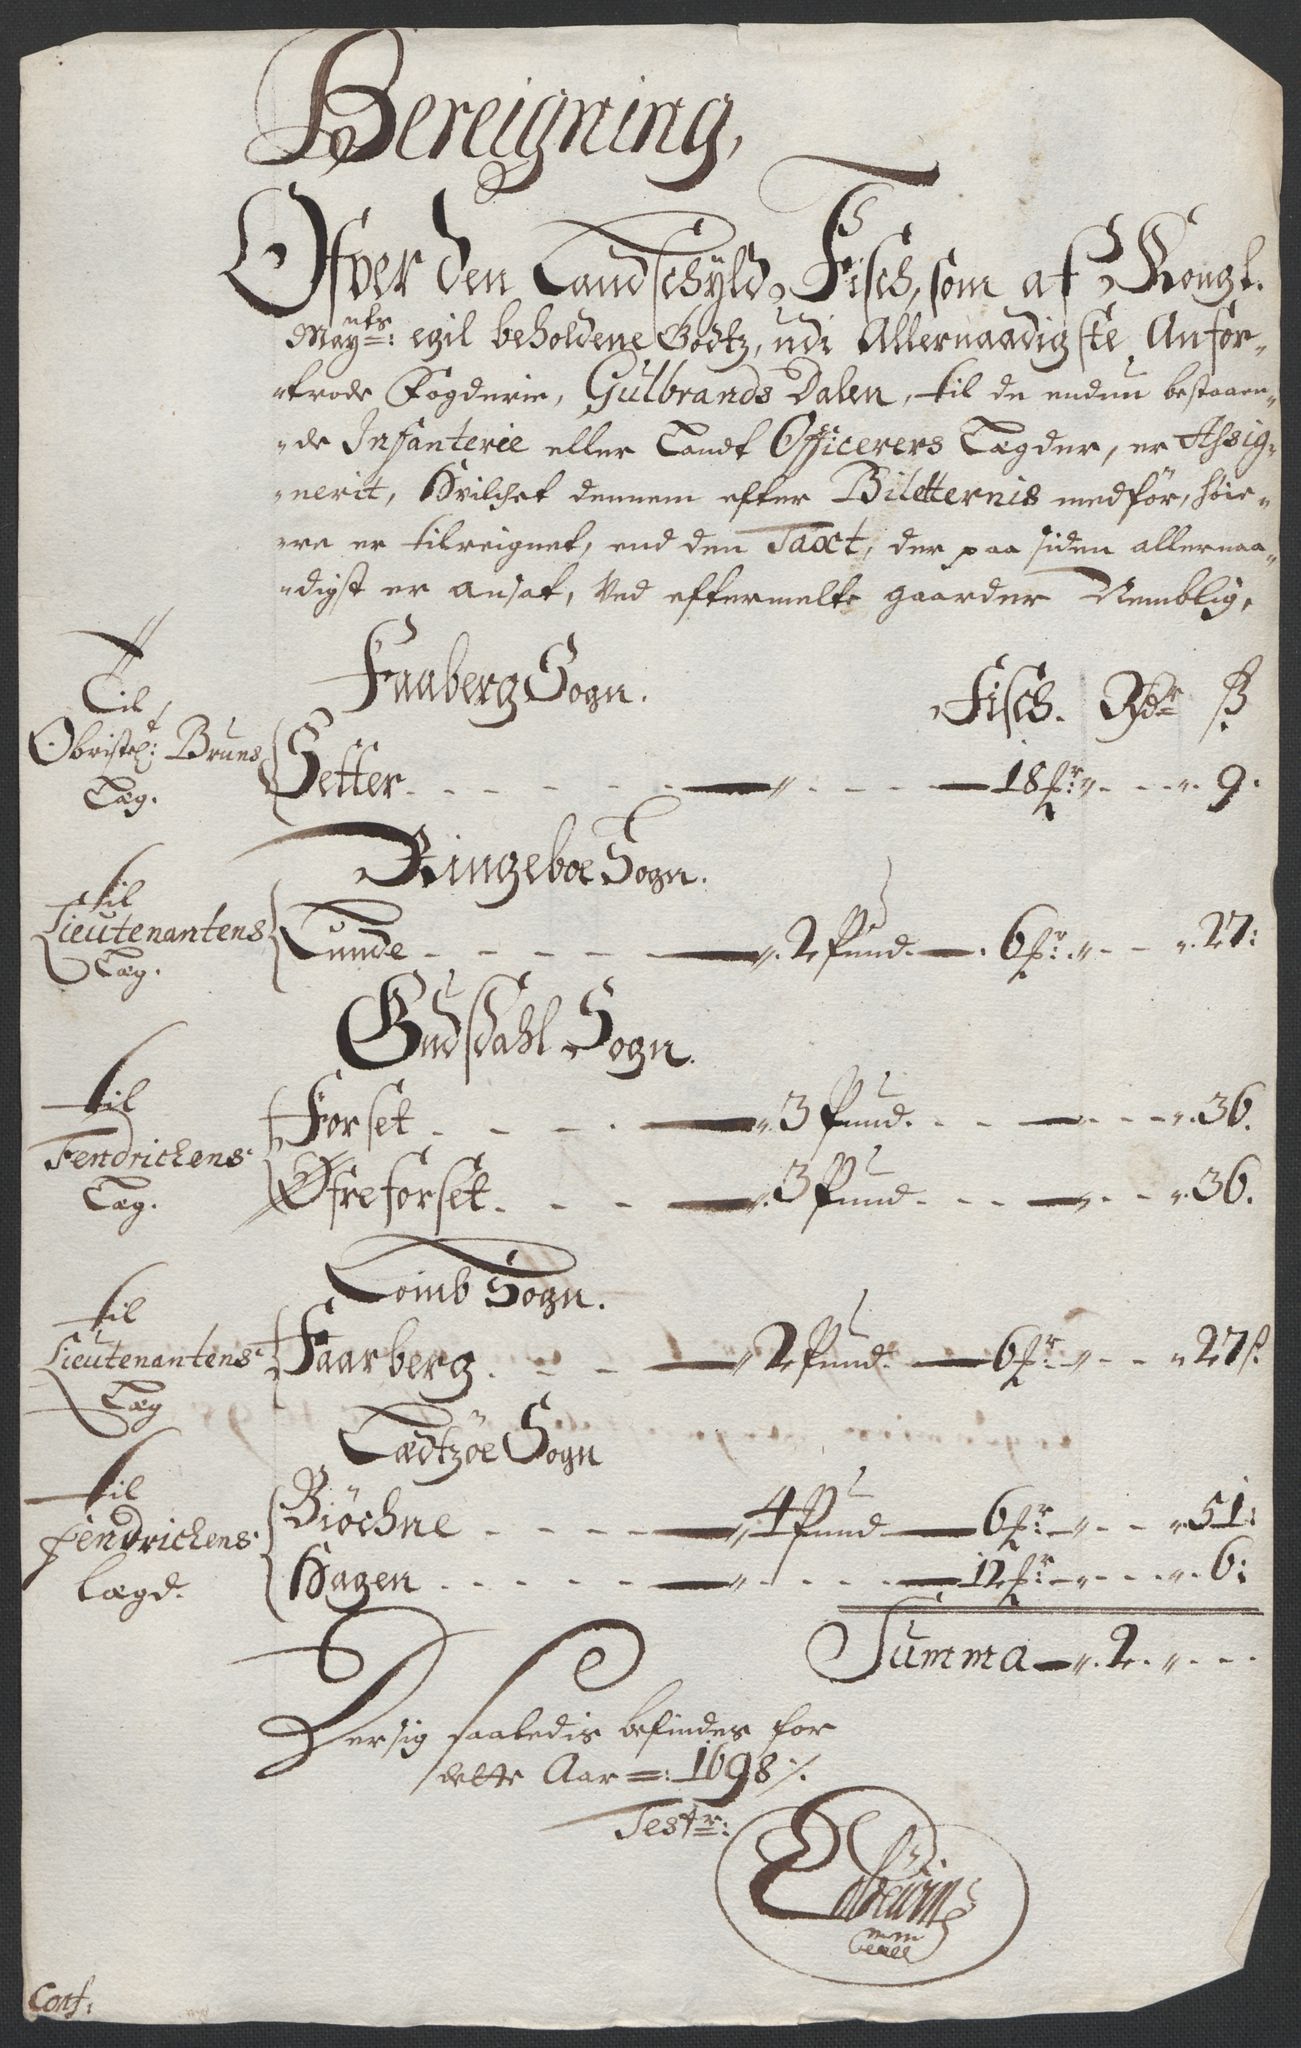 Bereigning,
Ofver den Landschyld Fisch, som af Kongl.
Mayts: egil beholdene Godtz, udi Allernaadigste Anfor-
trode Fogderie, Gulbrands Dalen, til de endnu bestaaen-
de Infanterie eller Landt Officerers Lægder, er Assig-
nerit, Hvilchet dennem efter Biletternis medför, höie-
re er tilreignet, end den Taxt, der paa siden allernaa-
digst er ansat, Ved eftermelte gaarder Nemblig,
Faaberg Sogn. Fisch. Rdr ß
Til Obristl: Bruns Læg. Setter - 18 fr: 9.
Ringeboe Sogn.
til Lieutenantens Læg. Lunde - 2 Pund - 6 fr: 27:
Gudsdahl Sogn.
til Fendrichens Læg. Forset - 3 Pund - 36.
Øfreforset - 3 Pund - 36.
Lomb Sogn.
til Lieutenantens Læg Faarberg - 2 Pund - 6 fr: 27 ß.
Lædtzöe Sogn
til Fendrichens Lægd. Biöchne - 4 Pund - 6 fr: 51:
Hagen - 12 fr: 6:
Summa - 2 -
Dersig saaledis befindes for
dette Aar =: 1698 ./.
Testr:
mm
Conf: